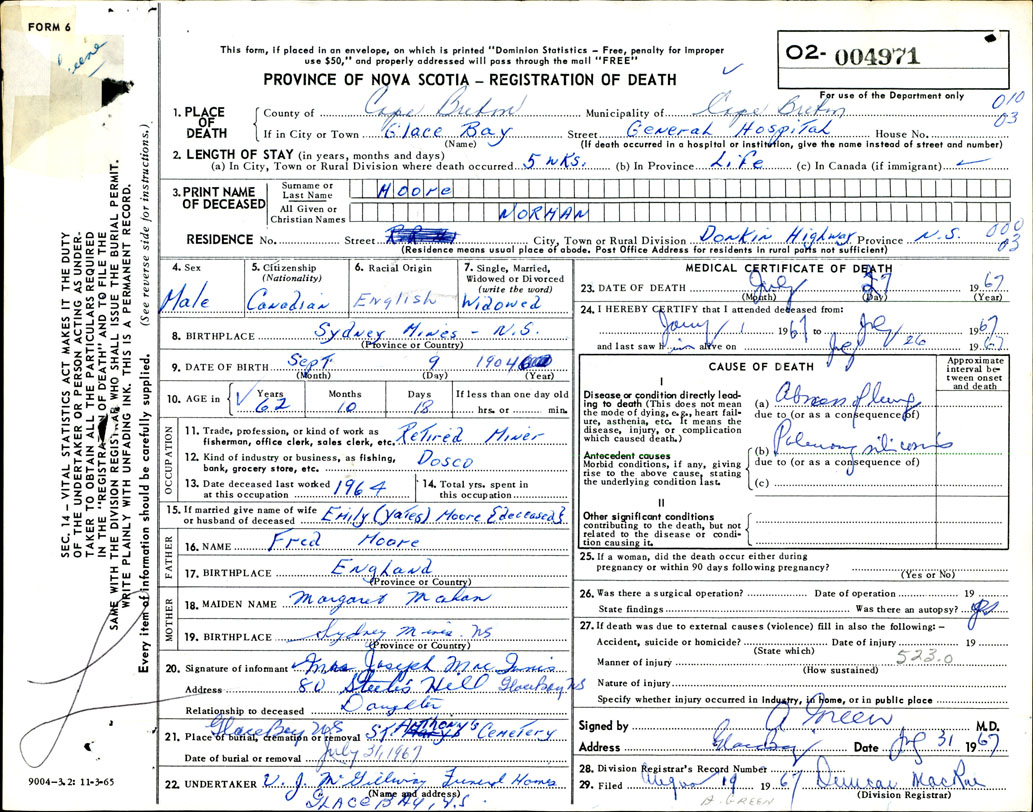 FORM 6
02- 004971
This form, if placed in an envelope, on which is printed "Dominion Statistics – Free, penalty for improper
use $50," and properly addressed will pass through the mail "FREE"
PROVINCE OF NOVA SCOTIA – REGISTRATION OF DEATH
For use of the Department only
010
03
1. PLACE OF DEATH County of Cape Breton Municipality of Cape Breton
If in City or Town Glace Bay Street General Hospital House No.
(Name) (If death occurred in a hospital or institution, give the name instead of street and number)
2. LENGTH OF STAY (in years, months and days)
(a) In City, Town or Rural Division where death occurred 5 wks. (b) In Province Life (c) In Canada (if immigrant)
3. PRINT NAME OF DECEASED Surname or Last Name Moore
All Given or Christian Names NORMAN
RESIDENCE No. Street City, Town or Rural Division Donkin Highway Province N.S. 000
03
(Residence means usual place of abode. Post Office Address for residents in rural parts not sufficient)
4. Sex Male
5. Citizenship (Nationality) Canadian
6. Racial Origin English
7. Single, Married, Widowed or Divorced (write the word) Widowed
8. BIRTHPLACE Sydney Mines – N.S.
(Province or Country)
9. DATE OF BIRTH Sept 9 1904
(Month) (Day) (Year)
10. AGE in Years 62 Months 10 Days 18 If less than one day old hrs. or min.
OCCUPATION
11. Trade, profession, or kind of work as fisherman, office clerk, sales clerk, etc. Retired Miner
12. Kind of industry or business, as fishing, bank, grocery store, etc. Dosco
13. Date deceased last worked at this occupation 1964
14. Total yrs. spent in this occupation
15. If married give name of wife or husband of deceased Emily (Yates) Moore {deceased}
FATHER
16. NAME Fred Moore
17. BIRTHPLACE England
(Province or Country)
MOTHER
18. MAIDEN NAME Margaret
19. BIRTHPLACE Sydney Mines NS
(Province or Country)
20. Signature of informant Mrs Joseph Mac Innis
Address 80 Steele's Hill Glace Bay NS
Relationship to deceased Daughter
21. Place of burial, cremation or removal Glace Bay NS St Anthony's Cemetery
Date of burial or removal July 31, 1967
22. UNDERTAKER V. J. McGillivray Funeral Homes
(Name and address)
GLACE BAY, N.S.
MEDICAL CERTIFICATE OF DEATH
23. DATE OF DEATH July 27 1967
(Month) (Day) (Year)
24. I HEREBY CERTIFY that I attended deceased from:
Jany 1 1967 to July 1967
and last saw him alive on July 26 1967
CAUSE OF DEATH
Approximate interval between onset and death
I
Disease or condition directly leading to death (This does not mean the mode of dying, e.g., heart failure, asthenia, etc. It means the disease, injury, or complication which caused death.)
(a) Abscess of lung
due to (or as a consequence of)
Antecedent causes
Morbid conditions, if any, giving rise to the above cause, stating the underlying condition last.
(b) Pulmonary silicosis
due to (or as a consequence of)
(c)
II
Other significant conditions
contributing to the death, but not related to the disease or condition causing it.
25. If a woman, did the death occur either during pregnancy or within 90 days following pregnancy?
(Yes or No)
26. Was there a surgical operation? Date of operation 19
State findings Was there an autopsy? yes
27. If death was due to external causes (violence) fill in also the following: –
Accident, suicide or homicide? Date of injury 19
(State which)
523.0
Manner of injury
(How sustained)
Nature of injury
Specify whether injury occurred in Industry, in Home, or in public place
Signed by A Green M.D.
Address Glace Bay Date July 31 1967
28. Division Registrar's Record Number
29. Filed August 19 1967 Duncan MacRae
(Division Registrar)
A. GREEN
SEC. 14 – VITAL STATISTICS ACT MAKES IT THE DUTY
OF THE UNDERTAKER OR PERSON ACTING AS UNDER-
TAKER TO OBTAIN ALL THE PARTICULARS REQUIRED
IN THE "REGISTRATION OF DEATH" AND TO FILE THE
SAME WITH THE DIVISION REGISTRAR WHO SHALL ISSUE THE BURIAL PERMIT.
WRITE PLAINLY WITH UNFADING INK. THIS IS A PERMANENT RECORD.
Every item of information should be carefully supplied. (See reverse side for instructions.)
9004–3.2: 11-3-65